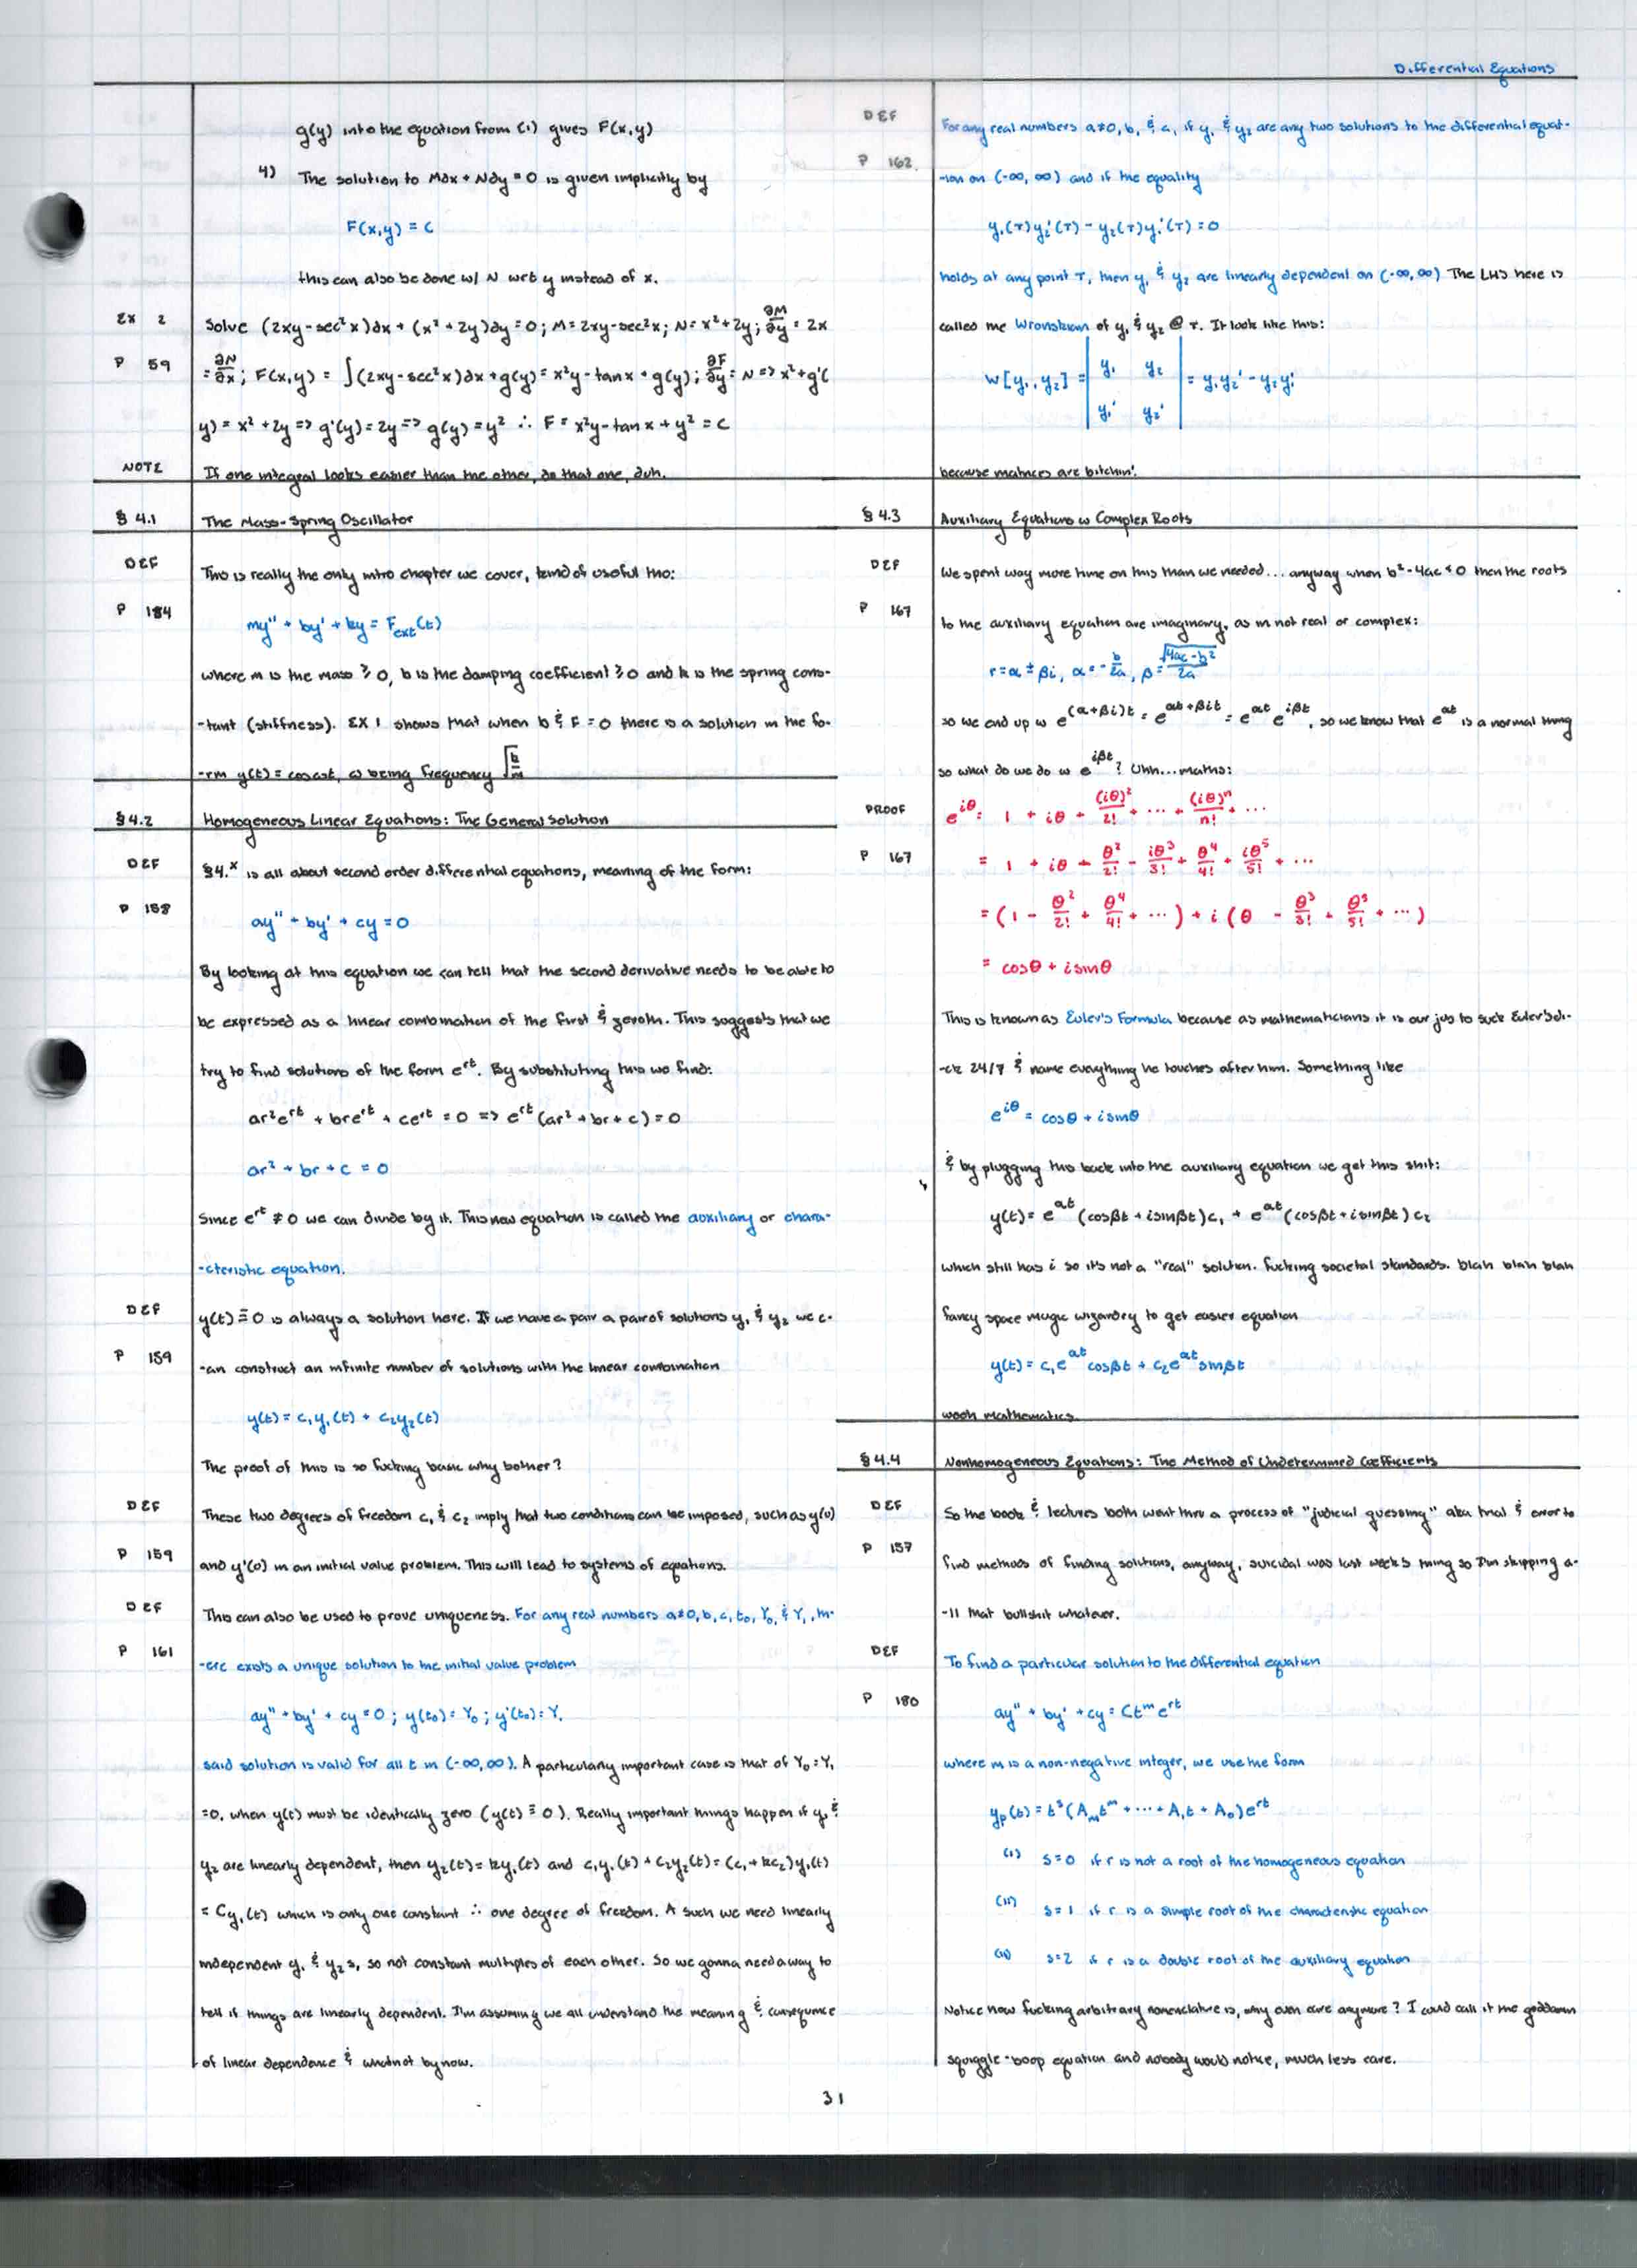 Differential Equations
g(y) into the equation from (i) gives F(x,y)
4) The solution to M∂x + N∂y = 0 is given implicitly by
F(x,y) = C
this can also be done w/ N wrt y instead of x.
EX 2 Solve (2xy-sec²x)∂x + (x²+2y)∂y = 0; M=2xy-sec²x; N=x²+2y; ∂M/∂y = 2x
P 59 = ∂N/∂x; F(x,y) = ∫(2xy-sec²x)∂x + g(y) = x²y-tanx + g(y); ∂F/∂y = N => x²+g'(
y) = x²+2y => g'(y)=2y => g(y)=y² ∴ F = x²y-tanx+y² = C
NOTE If one integral looks easier than the other, do that one, duh.
§ 4.1 The Mass-Spring Oscillator
DEF This is really the only intro chapter we cover, kind of useful tho:
P 184 my'' + by' + ky = Fext(t)
where m is the mass ≥0, b is the damping coefficient ≥0 and k is the spring cons-
-tant (stiffness). EX 1 shows that when b & F = 0 there is a solution in the fo-
-rm y(t) = cosωt, ω being frequency √(k/m)
§4.2 Homogeneous Linear Equations: The General Solution
DEF §4.x is all about second order differential equations, meaning of the form:
P 158 ay'' + by' + cy = 0
By looking at this equation we can tell that the second derivative needs to be able to
be expressed as a linear combination of the first & zeroth. This suggests that we
try to find solutions of the form e^rt. By substituting this we find:
ar²e^rt + bre^rt + ce^rt = 0 => e^rt(ar²+br+c)=0
ar² + br + c = 0
Since e^rt ≠ 0 we can divide by it. This new equation is called the auxiliary or chara-
-cteristic equation.
DEF y(t) ≡ 0 is always a solution here. If we have a pair a pair of solutions y₁ & y₂ we c-
P 159 -an construct an infinite number of solutions with the linear combination
y(t) = c₁y₁(t) + c₂y₂(t)
The proof of this is so fucking basic why bother?
DEF These two degrees of freedom c₁ & c₂ imply that two conditions can be imposed, such as y(0)
P 159 and y'(0) in an initial value problem. This will lead to systems of equations.
DEF This can also be used to prove uniqueness. For any real numbers a≠0, b, c, t₀, Y₀, & Y₁, th-
P 161 -ere exists a unique solution to the initial value problem
ay'' + by' + cy = 0; y(t₀) = Y₀; y'(t₀) = Y₁
said solution is valid for all t in (-∞,∞). A particularly important case is that of Y₀=Y₁
=0, when y(t) must be identically zero (y(t) ≡ 0). Really important things happen if y₁ &
y₂ are linearly dependent, then y₂(t)=ky₁(t) and c₁y₁(t)+c₂y₂(t)=(c₁+kc₂)y₁(t)
= Cy₁(t) which is only one constant ∴ one degree of freedom. A such we need linearly
independent y₁ & y₂s, so not constant multiples of each other. So we gonna need a way to
tell if things are linearly dependent. I'm assuming we all understand the meaning & consequence
of linear dependence & whatnot by now.
DEF For any real numbers a≠0, b, & c, if y₁ & y₂ are any two solutions to the differential equat-
P 162 -ion on (-∞, ∞) and if the equality
y₁(τ)y₂'(τ) - y₂(τ)y₁'(τ) = 0
holds at any point τ, then y₁ & y₂ are linearly dependent on (-∞,∞) The LHS here is
called the Wronskian of y₁ & y₂ @ τ. It look like this:
W[y₁,y₂] = | y₁ y₂ | = y₁y₂' - y₂y₁'
| y₁' y₂' |
because matrices are bitchin'.
§ 4.3 Auxiliary Equations w Complex Roots
DEF We spent way more time on this than we needed... anyway when b²-4ac<0 then the roots
P 167 to the auxiliary equation are imaginary, as in not real or complex:
r=α±βi, α=-b/2a, β=√(4ac-b²)/2a
so we end up w e^(α+βi)t = e^αt+βit = e^αt e^iβt, so we know that e^αt is a normal thing
so what do we do w e^iβt? Uhh...maths:
PROOF e^iθ = 1 + iθ + (iθ)²/2! + ... + (iθ)ⁿ/n! + ...
P 167 = 1 + iθ - θ²/2! - iθ³/3! + θ⁴/4! + iθ⁵/5! + ...
= (1 - θ²/2! + θ⁴/4! + ...) + i(θ - θ³/3! + θ⁵/5! + ...)
= cosθ + isinθ
This is known as Euler's Formula because as mathematicians it is our job to suck Euler's di-
-ck 24/7 & name everything he touches after him. Something like
e^iθ = cosθ + isinθ
& by plugging this back into the auxiliary equation we get this shit:
y(t) = e^αt(cosβt + isinβt)c₁ + e^αt(cosβt+isinβt)c₂
which still has i so it's not a "real" solution. fucking societal standards. blah blah blah
fancy space magic wizardry to get easier equation
y(t) = c₁e^αt cosβt + c₂e^αt sinβt
wooh mathematics.
§ 4.4 Nonhomogeneous Equations: The Method of Undetermined Coefficients
DEF So the book & lectures both went thru a process of "judicial guessing" aka trial & error to
P 157 find methods of finding solutions, anyway, suicidal was last week's thing so I'm skipping a-
-ll that bullshit whatever.
DEF To find a particular solution to the differential equation
P 180 ay'' + by' + cy = Ct^m e^rt
where m is a non-negative integer, we use the form
yp(t) = t^s(Amt^m + ... + A₁t + A₀)e^rt
(i) s=0 if r is not a root of the homogeneous equation
(ii) s=1 if r is a simple root of the characteristic equation
s=2 if r is a double root of the auxiliary equation
Notice how fucking arbitrary nomenclature is, why even care anymore? I could call it the goddamn
squiggle-boop equation and nobody would notice, much less care.
31